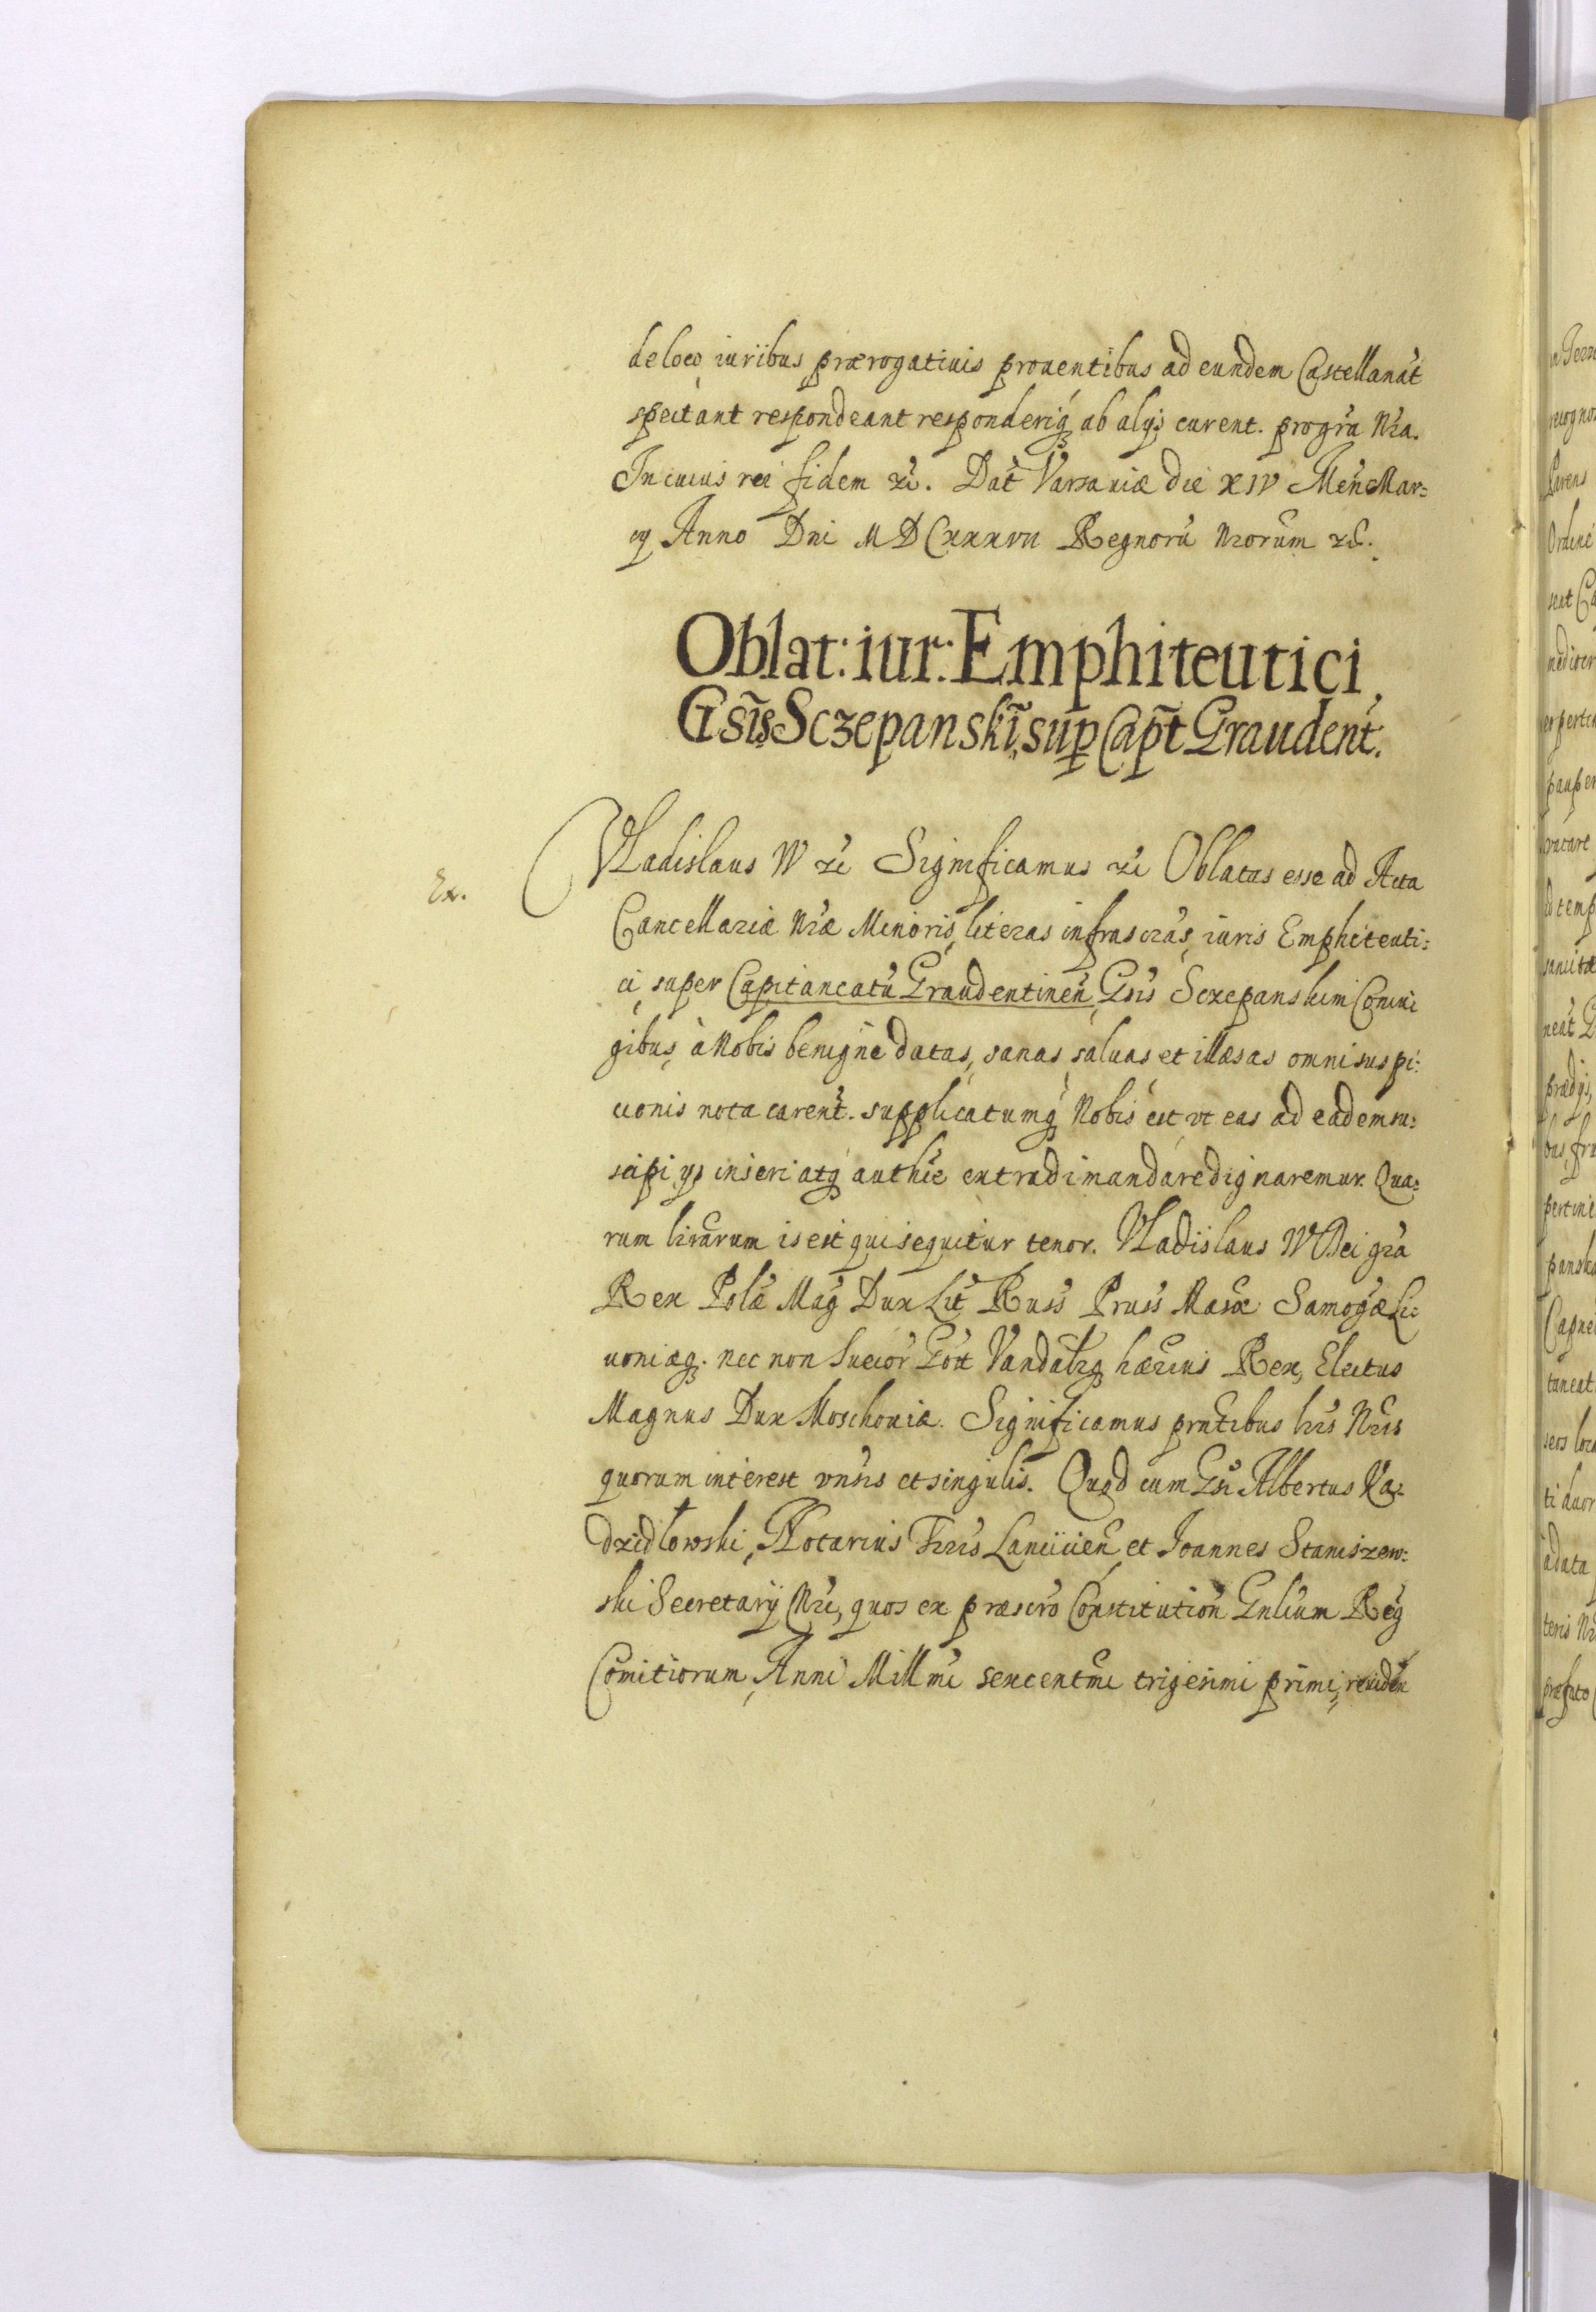 de loco iuribus prærogatiuis prouentibus ad eundem Castellanat̃
spectant respondeant responderiq́ȝ ab alijs curent. pro gr̃a Nr̃a.
In cuius rei fidem ꝛc̃. Dat̃ Varsauiæ die XIV Meñ Mar=
tij Anno Dni MDCXXXVII Regnorũ Nr̃orum ꝛc̃.
Oblat: iur: Emphiteutici
Gsĩs Sczepanskĩ, sup Cap̃t Graudent̃.
Ex.
Vladislaus IV ꝛc̃ Significamus ꝛc̃ Oblatas esse ad Acta
Cancellariæ Nr̃æ Minoris, literas infrascr̃as, iuris Emphiteuti=
ci, super Capitaneatũ Graudentineñ, Gsis̃ Sczepanskim Coniu
gibus, à Nobis benignè datas, sanas, saluas et illæsas omni suspi=
cionis nota careñt. supplicatumq́ȝ Nobis est, vt eas ad eadem su=
scipi ijs inseri atq́ȝ authc̃e extradi mandare dignaremur. Qua=
rum lr̃arum is est qui sequitur tenor. Vladislaus IV Dei gr̃a
Rex Polæ̃ Mag̃ Dux Lit̃ Russ̃ Pruss̃ Masæ̃ Samog̃æ Li=
uoniæq́ȝ. nec non Suecor̃ Gott̃ Vandal̃rq́ȝ hær̃ius Rex, Electus
Magnus Dux Moschouiæ. Significamus pr̃ntibus lr̃is Nr̃is
quorum interest vnsĩs et singulis. Quod cum Gsi Albertus Ka=
dzidlowski, Notarius Tr̃ris Lanciien̄ et Joannes Staniszew=
ski Secretarij Nr̃i, quos ex præscr̃o Constitution̄ Gnl̃ium Reg̃
Comitiorum, Anni Millmĩ sexcentmĩ trigesimi primi,